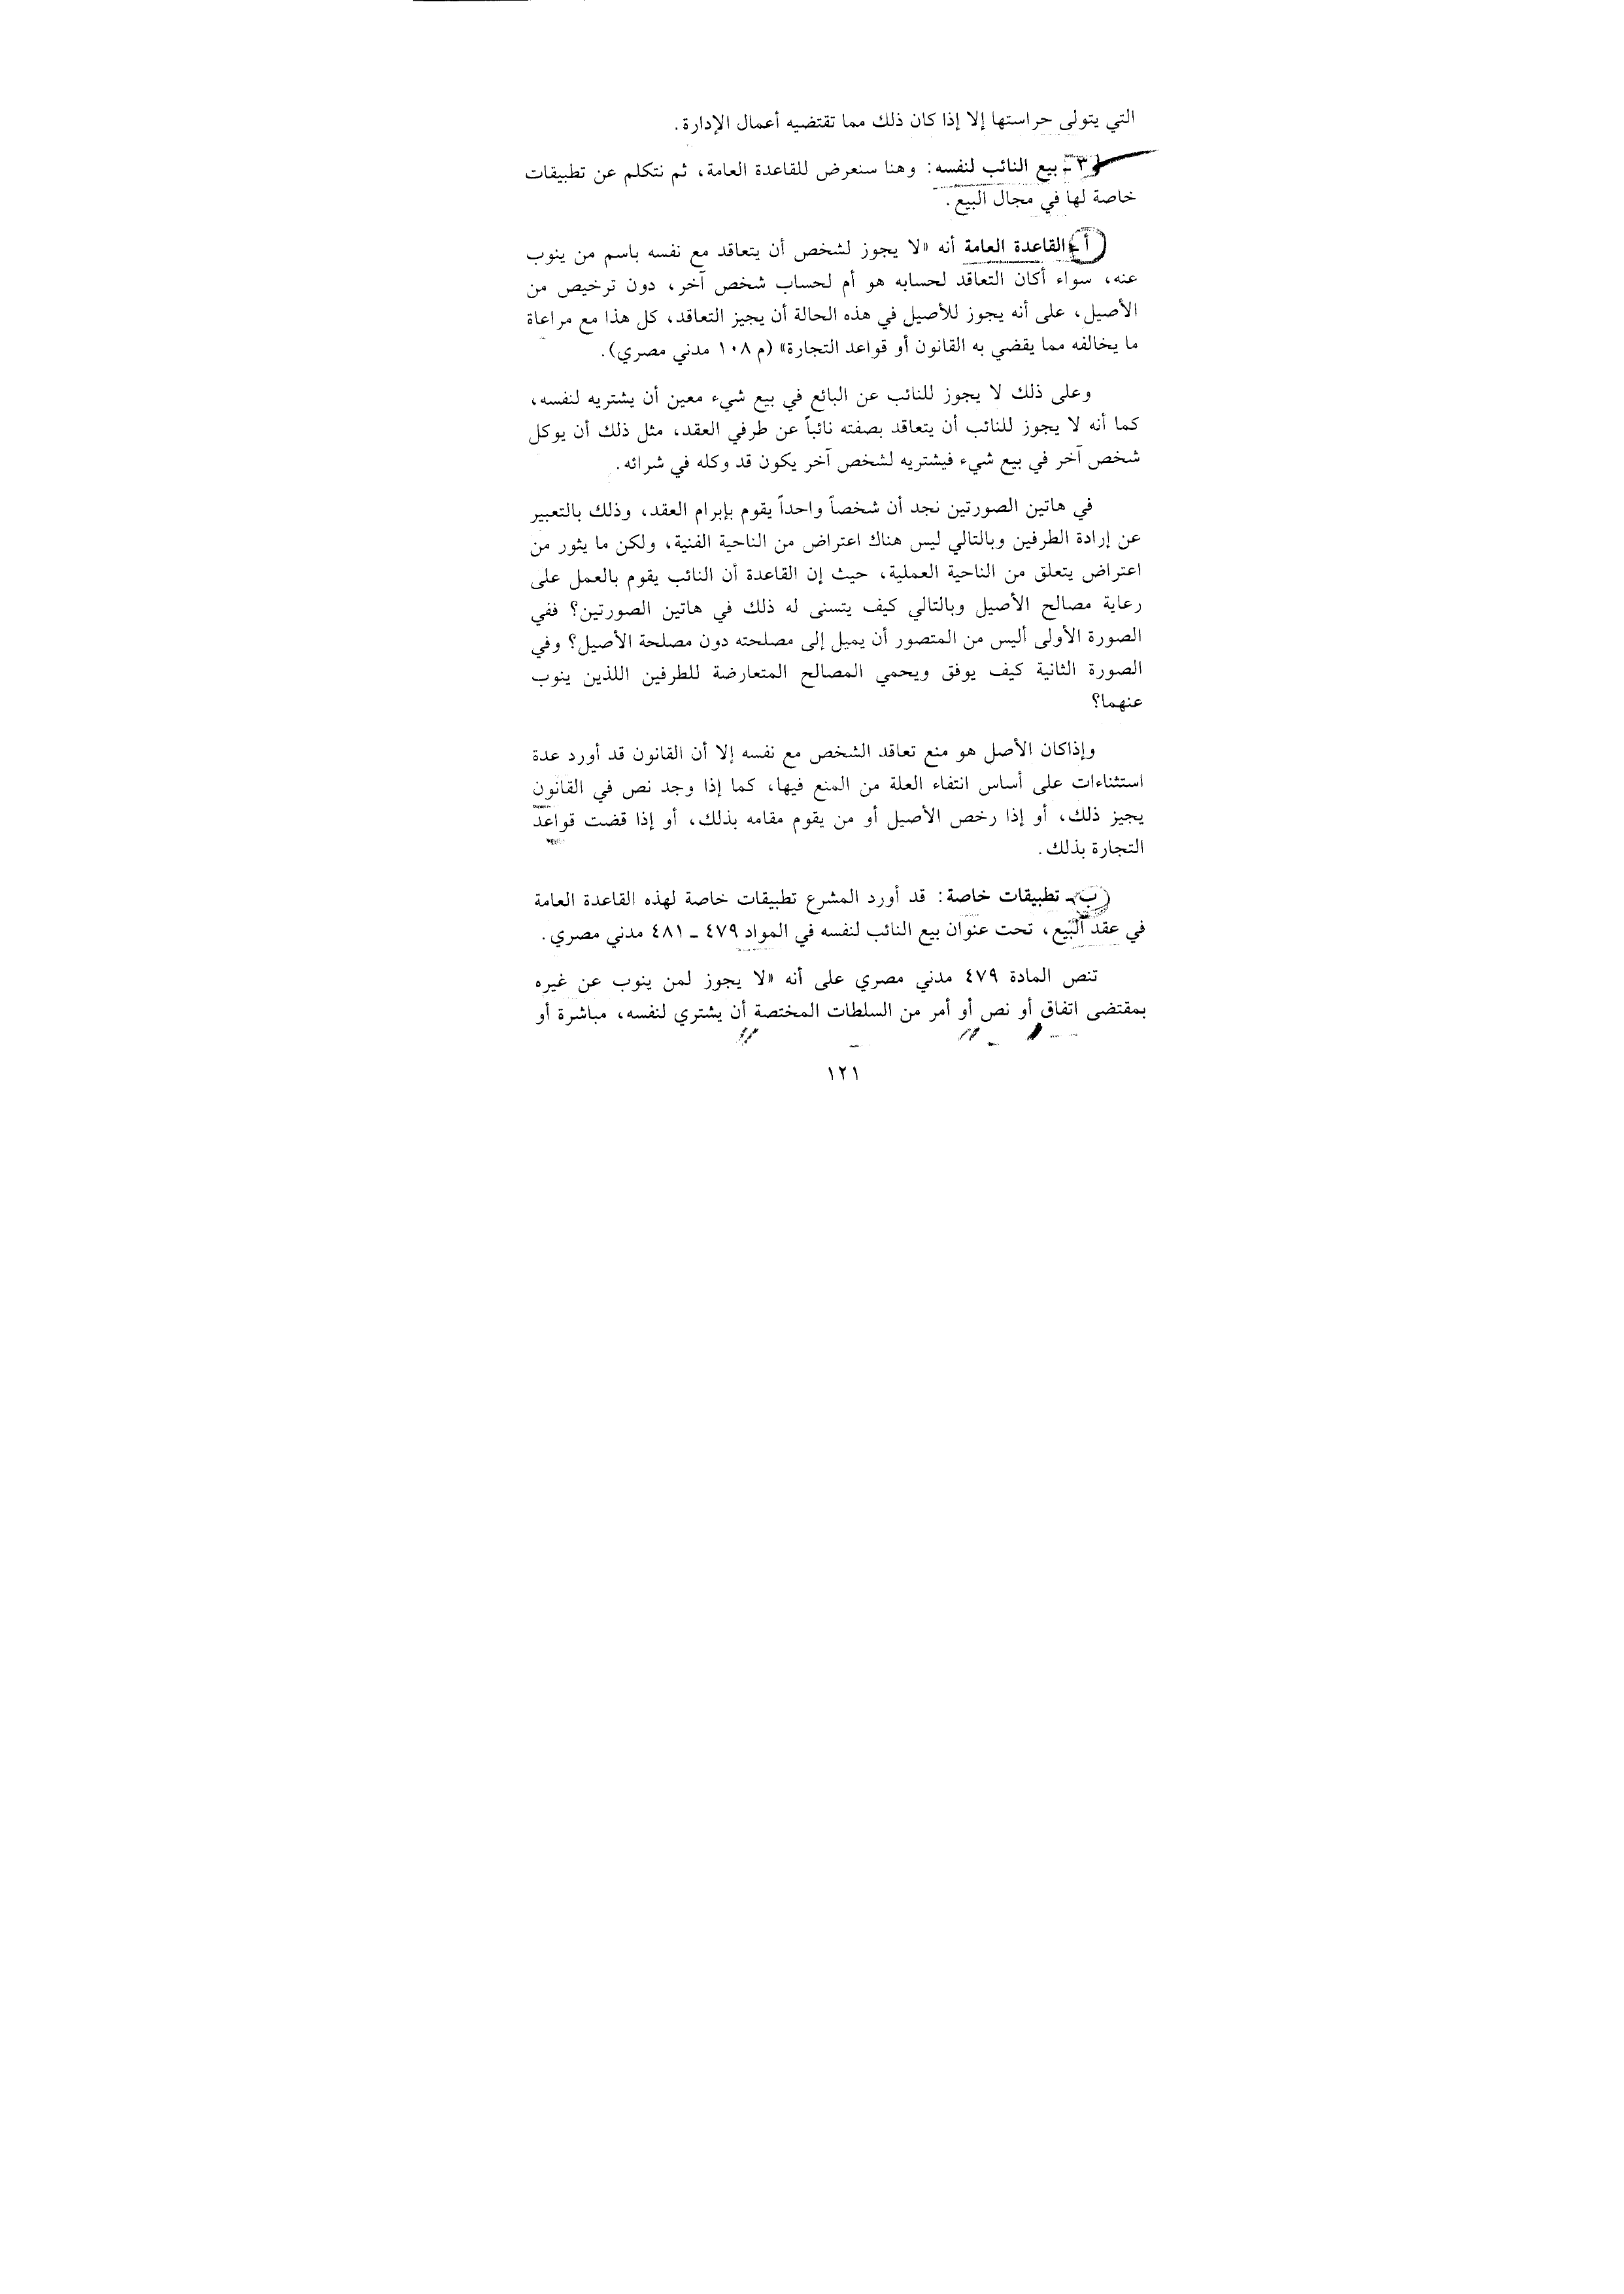 التي يتولى حراستها إلا إذا كان ذلك مما تقتضيه أعمال الإدارة.
٣ ـ بيع النائب لنفسه: وهنا سنعرض للقاعدة العامة، ثم نتكلم عن تطبيقات
خاصة لها في مجال البيع.
أ ـ القاعدة العامة أنه «لا يجوز لشخص أن يتعاقد مع نفسه باسم من ينوب
عنه، سواء أكان التعاقد لحسابه هو أم لحساب شخص آخر، دون ترخيص من
الأصيل، على أنه يجوز للأصيل في هذه الحالة أن يجيز التعاقد، كل هذا مع مراعاة
ما يخالفه مما يقضي به القانون أو قواعد التجارة» (م ١٠٨ مدني مصري).
وعلى ذلك لا يجوز للنائب عن البائع في بيع شيء معين أن يشتريه لنفسه،
كما أنه لا يجوز للنائب أن يتعاقد بصفته نائباً عن طرفي العقد، مثل ذلك أن يوكل
شخص آخر في بيع شيء فيشتريه لشخص آخر يكون قد وكله في شرائه.
في هاتين الصورتين نجد أن شخصاً واحداً يقوم بإبرام العقد، وذلك بالتعبير
عن إرادة الطرفين وبالتالي ليس هناك اعتراض من الناحية الفنية، ولكن ما يثور من
اعتراض يتعلق من الناحية العملية، حيث إن القاعدة أن النائب يقوم بالعمل على
رعاية مصالح الأصيل وبالتالي كيف يتسنى له ذلك في هاتين الصورتين؟ ففي
الصورة الأولى أليس من المتصور أن يميل إلى مصلحته دون مصلحة الأصيل؟ وفي
الصورة الثانية كيف يوفق ويحمي المصالح المتعارضة للطرفين اللذين ينوب
عنهما؟
وإذاكان الأصل هو منع تعاقد الشخص مع نفسه إلا أن القانون قد أورد عدة
استثناءات على أساس انتفاء العلة من المنع فيها، كما إذا وجد نص في القانون
يجيز ذلك، أو إذا رخص الأصيل أو من يقوم مقامه بذلك، أو إذا قضت قواعد
التجارة بذلك.
ب ـ تطبيقات خاصة: قد أورد المشرع تطبيقات خاصة لهذه القاعدة العامة
في عقد البيع، تحت عنوان بيع النائب لنفسه في المواد ٤٧٩ ـ ٤٨١ مدني مصري.
تنص المادة ٤٧٩ مدني مصري على أنه «لا يجوز لمن ينوب عن غيره
بمقتضى اتفاق أو نص أو أمر من السلطات المختصة أن يشتري لنفسه، مباشرة أو
١٢١